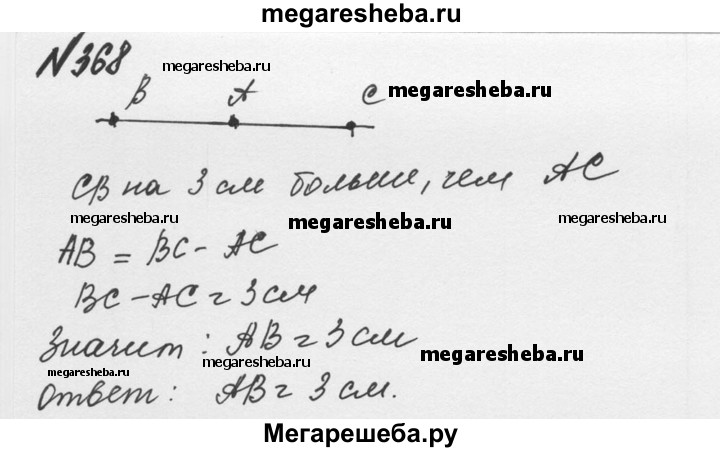 megaresheba.ru
№368
megaresheba.ru
B A C
megaresheba.ru
CB на 3 см больше, чем AC
megaresheba.ru megaresheba.ru megaresheba.ru
AB = BC - AC
BC - AC = 3 см
Значит: AB = 3 см
megaresheba.ru megaresheba.ru megaresheba.ru
Ответ: AB = 3 см.
Мегарешеба.ру